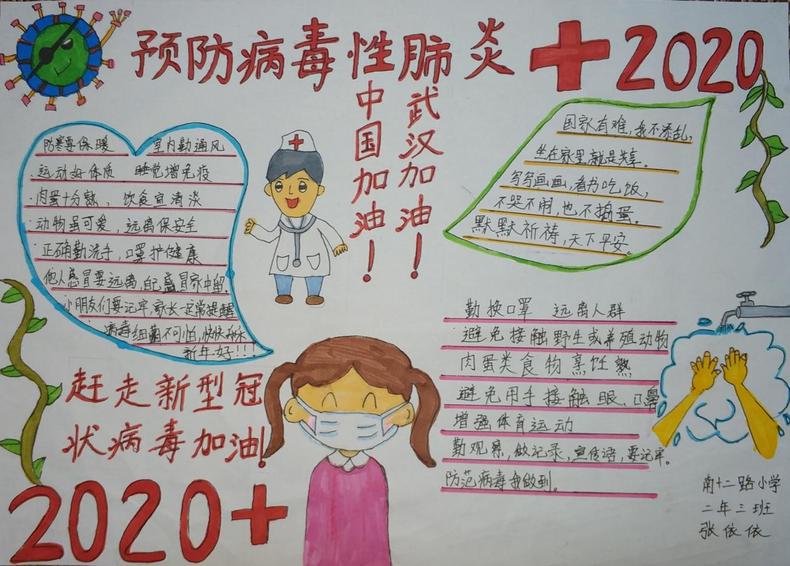 预防病毒性肺炎+2020
中国加油！
武汉加油！
防寒要保暖 室内勤通风
运动好体质 睡觉增免疫
肉蛋十分熟、饮食宜清淡
动物虽可爱，远离保安全
正确勤洗手，口罩护健康
他人感冒要远离，自己感冒家中留。
小朋友们要记牢，家长一定常提醒
病毒细菌不可怕，快快乐乐
新年好！！！
国家有难，我不添乱，
坐在家里就是共享。
写写画画，看书吃饭，
不哭不闹，也不捣蛋。
默默祈祷，天下平安。
勤换口罩 远离人群
避免接触野生或养殖动物
肉蛋类食物烹饪熟
避免用手接触眼、口鼻
增强体育运动
勤观察，做记录，宣传语，要记牢。
防范病毒做到。
赶走新型冠
状病毒加油！
2020+
南十二路小学
二年三班
张依依